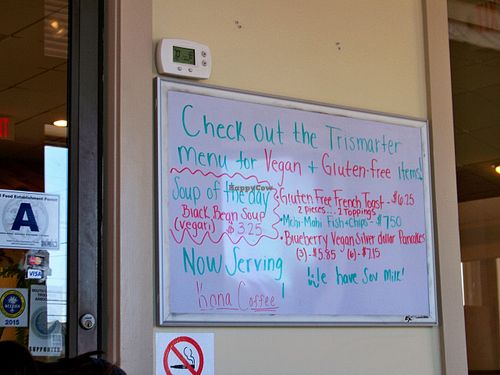 Check out the Trismarter
menu for Vegan + Gluten-free items!
Soup of the day
Black Bean Soup
(vegan) $3.25
Gluten Free French Toast - $6.25
2 pieces... 2 Toppings
• Mahi-Mahi Fish + Chips - $7.50
• Blueberry Vegan Silver dollar Pancakes
(3) - $5.85 (6) - $7.15
Now Serving
Kona Coffee!
We have Soy Milk!
HappyCow
Food Establishment
A
VISA
2015
SUPPORTER